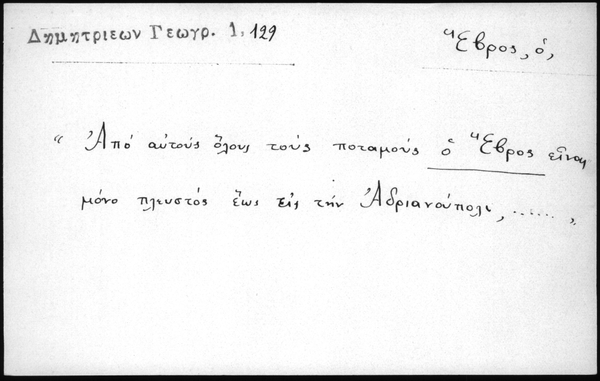 Δημητριεων Γεωγρ. 1, 129
Ἕβρος, ὁ,
“ Ἀπό αὐτούς ὅλους τούς ποταμούς ὁ Ἕβρος εἶναι
μόνο πλευστός ἕως εἰς τήν Ἀδριανούπολι, ...... „